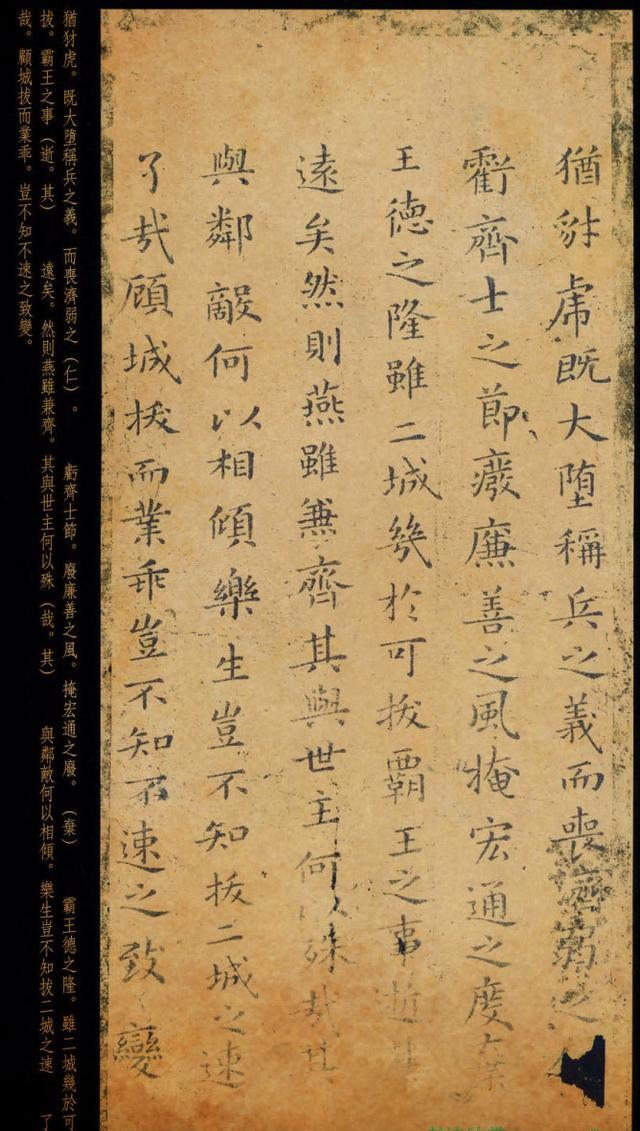 猶豺虎既大堕稱兵之義而喪濟弱之
虧齊士之節癈廉善之風掩宏通之度棄
王德之隆雖二城幾於可拔霸王之事逝其
遠矣然則燕雖兼齊其與世主何以殊哉其
與鄰敵何以相傾樂生豈不知拔二城之速
了哉顧城拔而業乖豈不知不速之致變
猶豺虎。既大堕稱兵之義。而喪濟弱之（仁）。 虧齊士節。廢廉善之風。掩宏通之廢。（棄） 霸王德之隆。雖二城幾於可
拔。霸王之事（逝。其） 遠矣。然則燕雖兼齊。其與世主何以殊（哉。其） 與鄰敵何以相傾。樂生豈不知拔二城之速 了
哉。顧城拔而業乖。豈不知不速之致變。